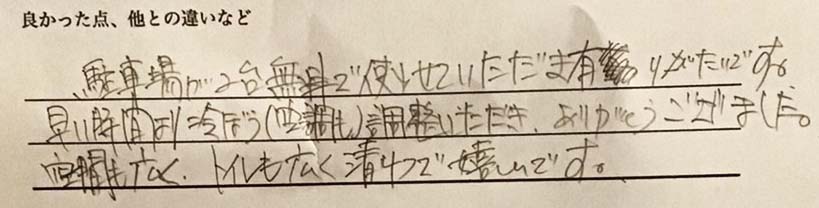 良かった点、他との違いなど
駐車場が2台無料で使わせていただき有難りがたいです。
早い時間より冷ぼう(空調も)調整いただき、ありがとうございました。
空間も広く、トイレも広く清けつで嬉しいです。